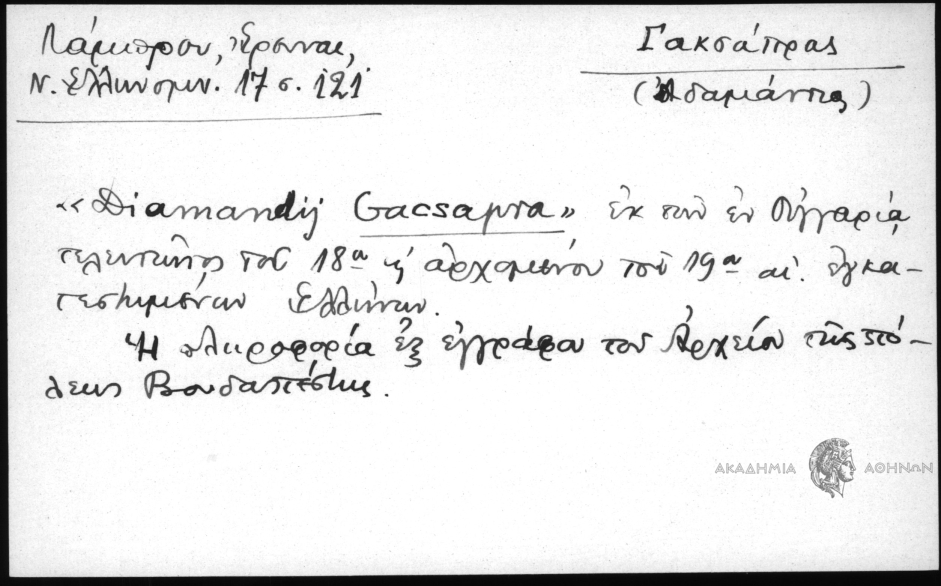 Λάμπρου, Ἔρευναι,
Ν. Ἑλληνομν. 17 σ. 121
Γακσάπρας
(Ἀδαμάντιος)
«Diamandij Gacsapra» ἐκ τῶν ἐν Οὑγγαρίᾳ
τελευτῶντος τοῦ 18ου ἢ ἀρχομένου τοῦ 19ου αἰ. ἐγκα-
τεστημένων Ἑλλήνων.
Ἡ πληροφορία ἐξ ἐγγράφου τοῦ Ἀρχείου τῆς πό-
λεως Βουδαπέστης.
ΑΚΑΔΗΜΙΑ ΑΘΗΝΩΝ